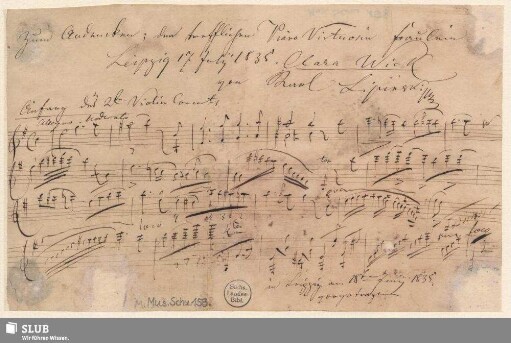 Zum Andenken: der trefflichen Piano Virtuosin Fräulein
Leipzig 17 July 1835. Clara Wieck
von Karl Lipinski
Anfang des 2t Violin Concerts
Allegro moderato
loco
loco
in Leipzig am 1835
M, Mus. Schu 153.
SLUB
Wir führen Wissen.